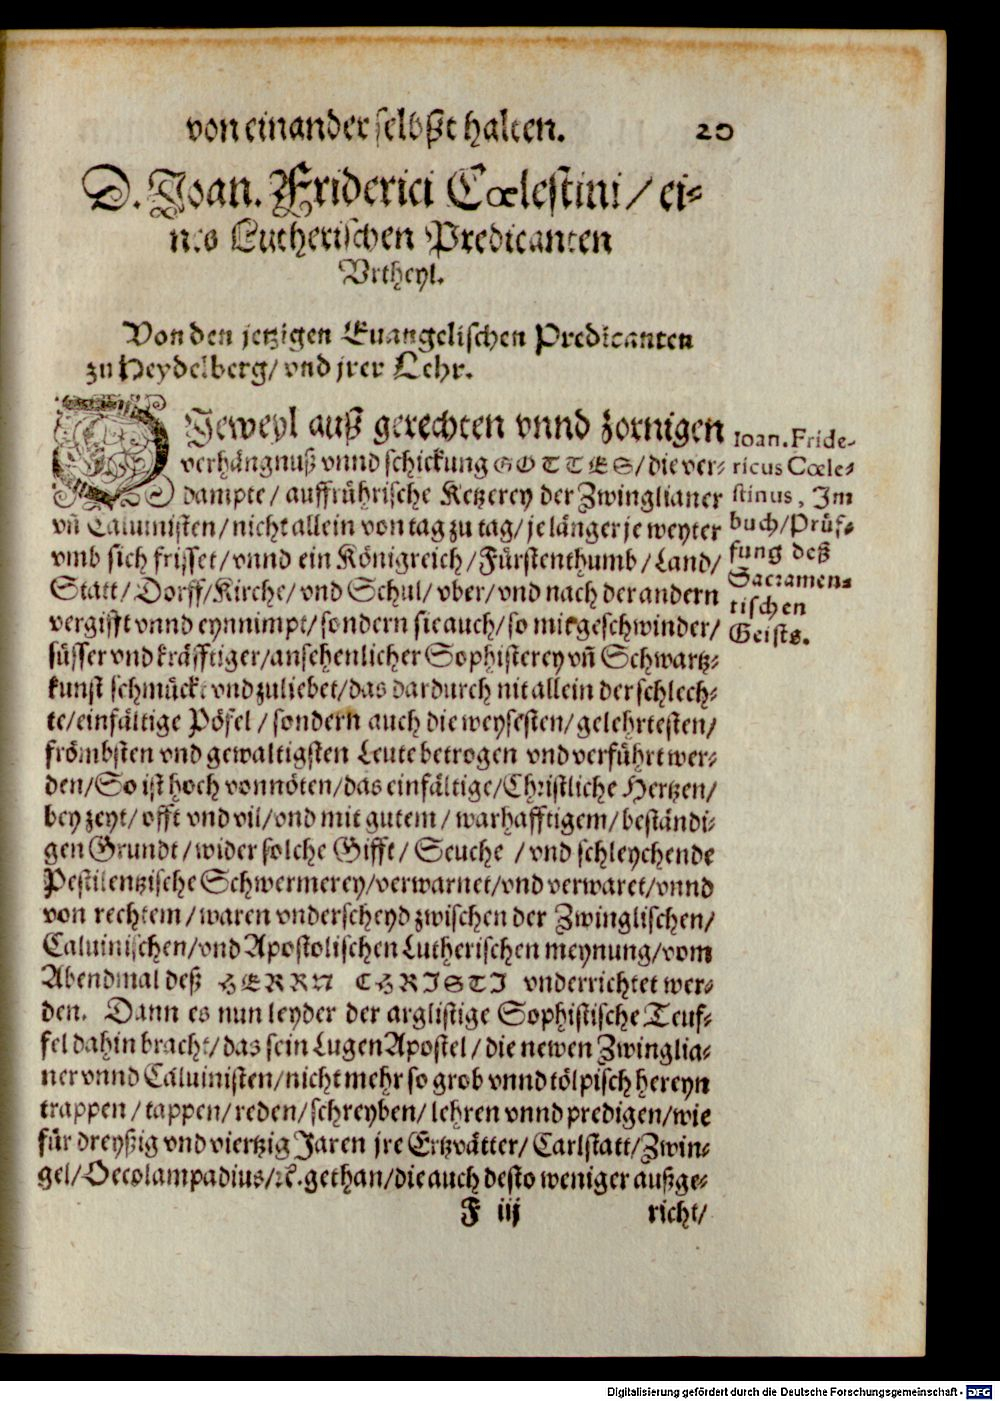 von einander selbßt halten. 20
D. Joan. Friderici Cœlestini / ei-
nes Lutherischen Predicanten
Vrtheyl.
Von den jetzigen Euangelischen Predicanten
zu Heydelberg / vnd jrer Lehr.
DJeweyl auß gerechten vnnd zornigen
verhängnuß vnnd schickung GOTTES / die ver-
dampte / auffrührische Ketzerey der Zwinglianer
vñ Caluinisten / nicht allein von tag zu tag / je länger je weyter
vmb sich frisset / vnnd ein Königreich / Fürstenthumb / Land /
Statt / Dorff / Kirche / vnd Schul / vber / vnd nach der andern
vergifft vnnd eynnimpt / sondern sie auch / so mit geschwinder /
süsser vnd kräfftiger / ansehenlicher Sophisterey vñ Schwartz-
kunst schmückt vnd zuliebet / das dardurch nit allein der schlech-
te / einfältige Pöfel / sondern auch die weysesten / gelehrtesten /
frömbsten vnd gewaltigsten Leute betrogen vnd verführt wer-
den / So ist hoch vonnöten / das einfältige / Christliche Hertzen /
bey zeyt / offt vnd vil / vnd mit gutem / warhafftigem / beständi-
gen Grundt / wider solche Gifft / Seuche / vnd schleychende
Pestilentzische Schwermerey / verwarnet / vnd verwaret / vnnd
von rechtem / waren vnderscheyd zwischen der Zwinglischen /
Caluinischen / vnd Apostolischen Lutherischen meynung / vom
Abendmal deß HERRN CHRISTI vnderrichtet wer-
den. Dann es nun leyder der arglistige Sophistische Teuf-
fel dahin bracht / das sein Lugen Apostel / die newen Zwinglia-
ner vnnd Caluinisten / nicht mehr so grob vnnd tölpisch hereyn
trappen / tappen / reden / schreyben / lehren vnnd predigen / wie
für dreyßig vnd viertzig Jaren jre Ertzvätter / Carlstatt / Zwin-
gel / Oecolampadius / ꝛc. gethan / die auch desto weniger außge-
F iij richt /
Ioan. Fride-
ricus Cœle-
stinus, Im
buch / Prüf-
fung deß
Sacramen-
tischen
Geists.
Digitalisierung gefördert durch die Deutsche Forschungsgemeinschaft - DFG